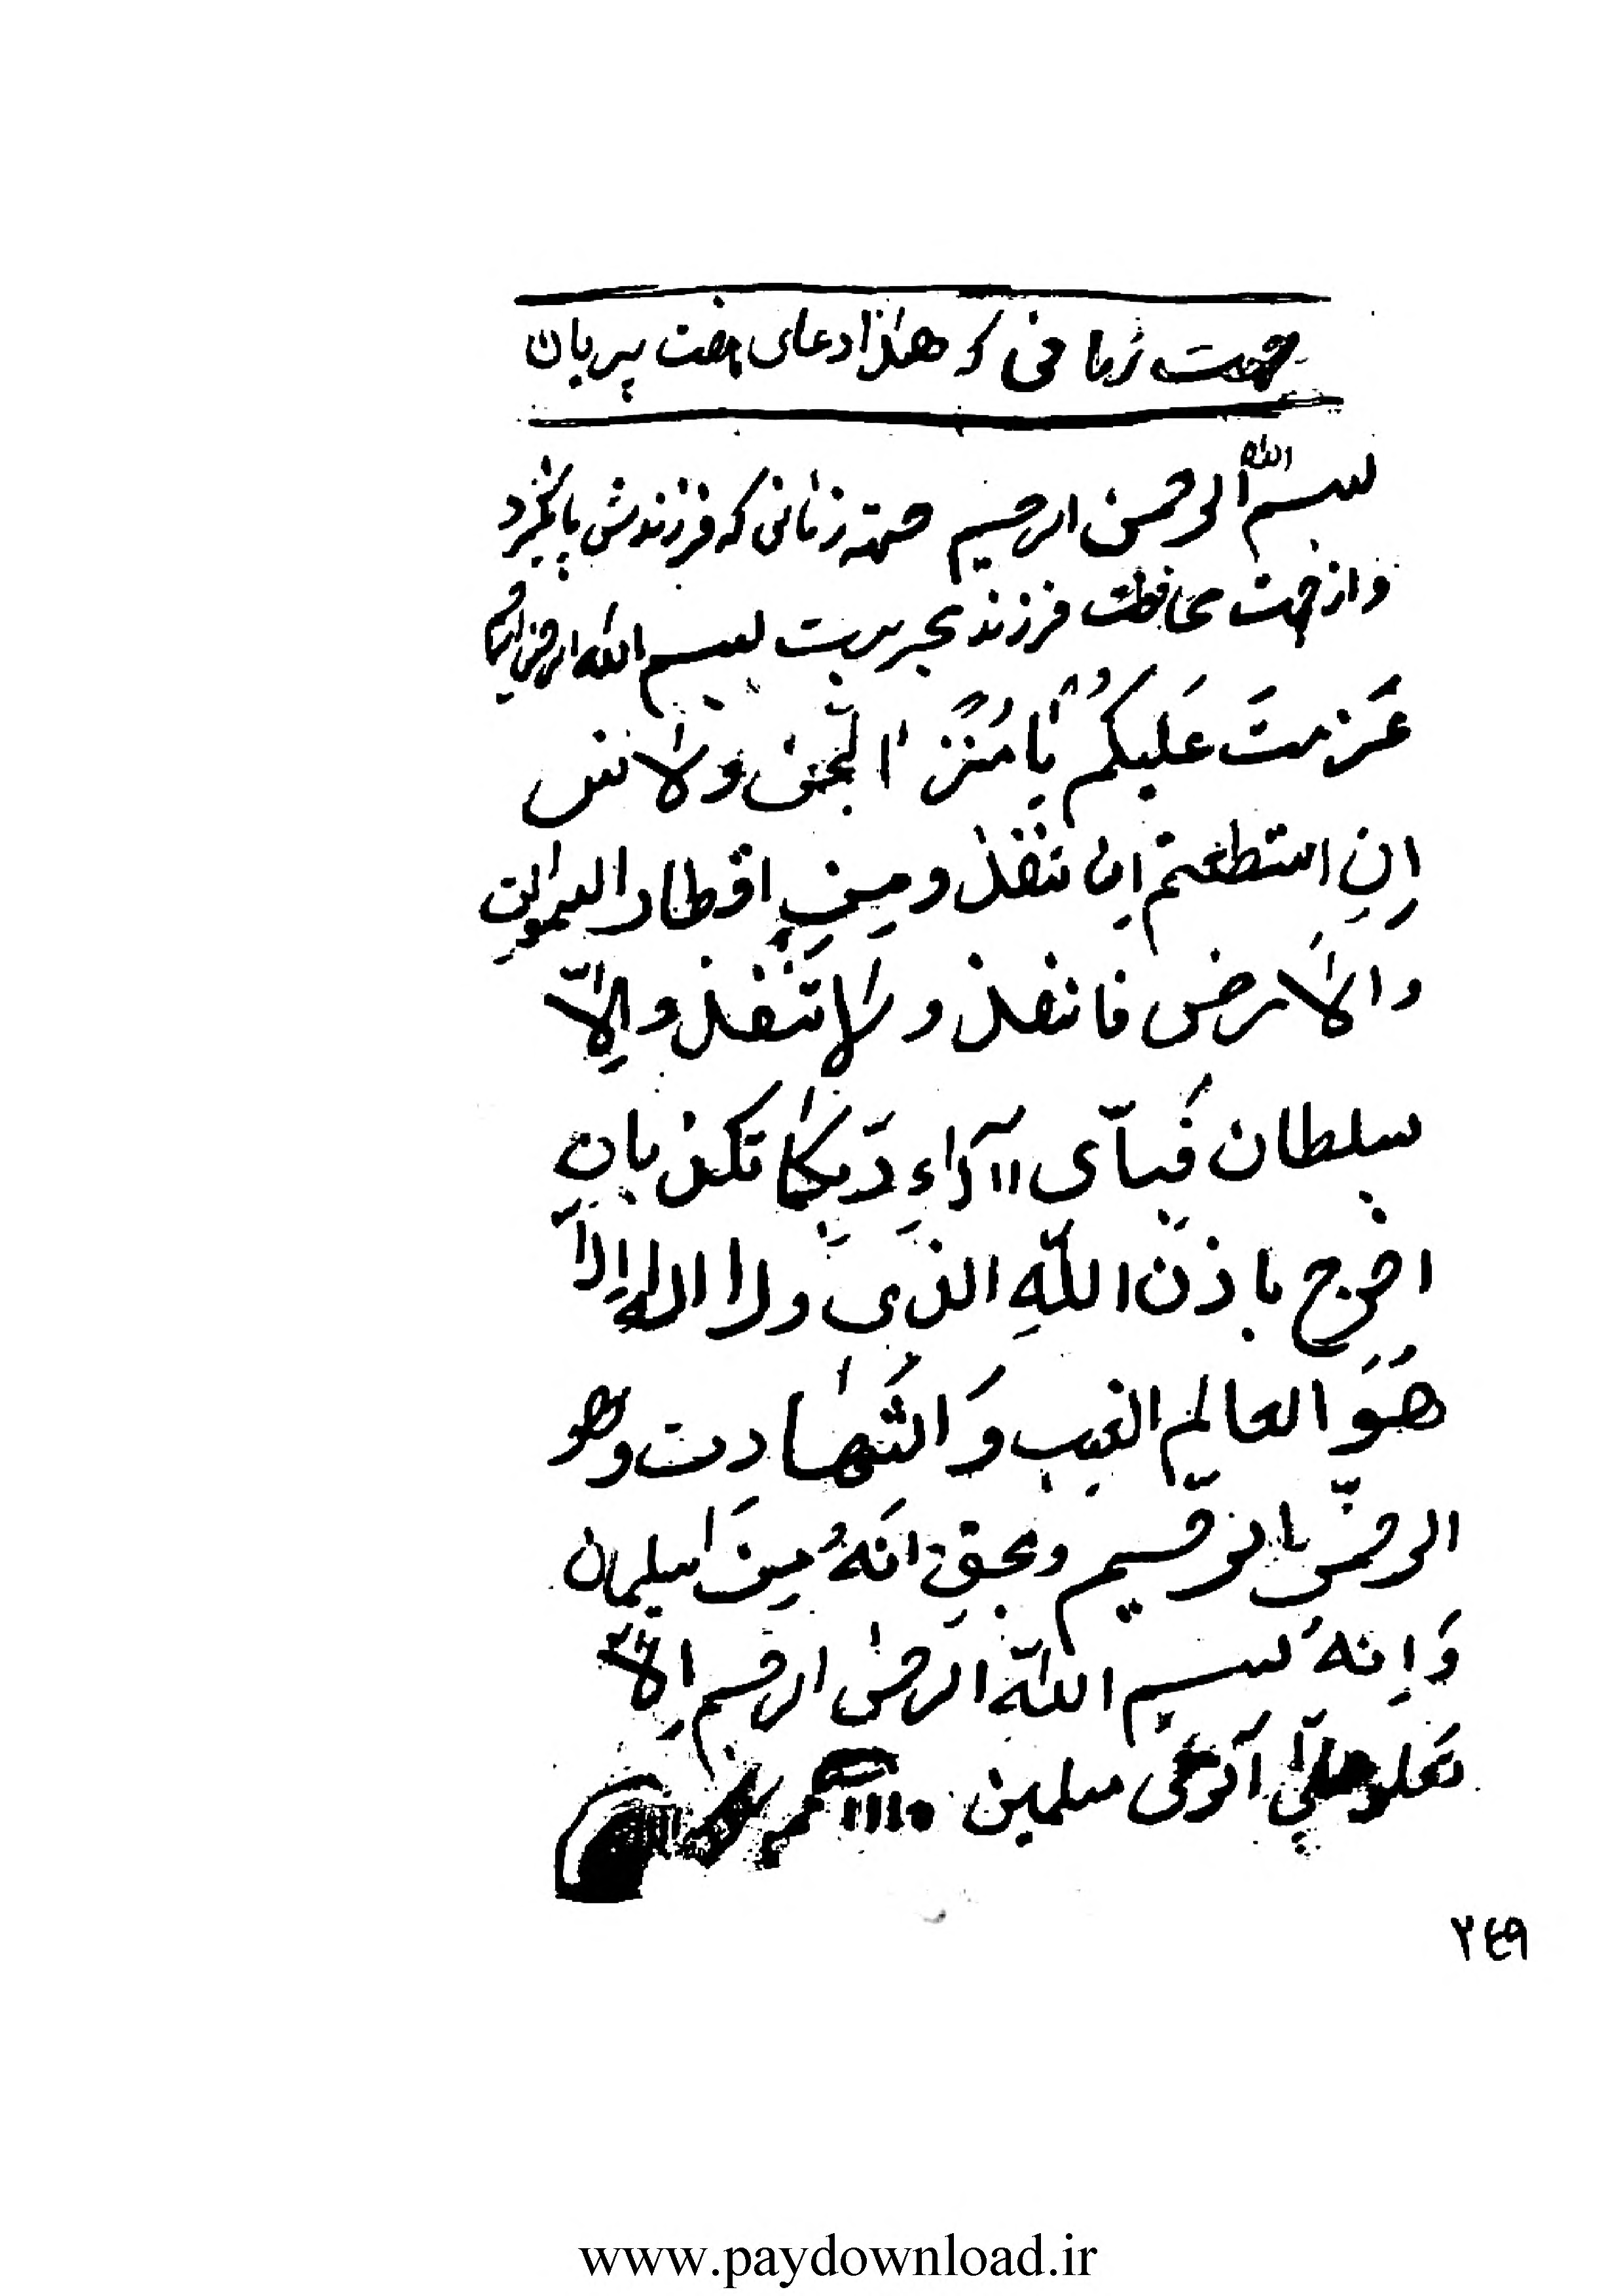 جهت زمانی که هذا دعای هفت پریان
بسم الله الرحمن الرحیم جهته زنانی که فرزندش پانگیرد
و از جهت محافظت فرزند مجربست بسم الله الرحمن الرحیم
عَزمتَ عَلَیکُم یا الجن ولانس
اِنِ استطعتم اِن تنفذو مِنِ اقطار السموات
والاَرض فانفذو لا تنفذو اِلاّ
بسلطان فَبِاَّی آلآءِ رَبِّکُما تکذبانِ
اخرج باذن اللّهِ الذی ولا اله اِلاّ
هُوَ العالم الغیب وَ الشَهادت وهو
الرحمن الرحیم وبحقِ انَهُ مِنَ سلیمان
وَاِنهُ بسم اللّه الرحمن الرحیم اِلا
تعلو علیّ آتونی مسلمین
۲٤۹
www.paydownload.ir